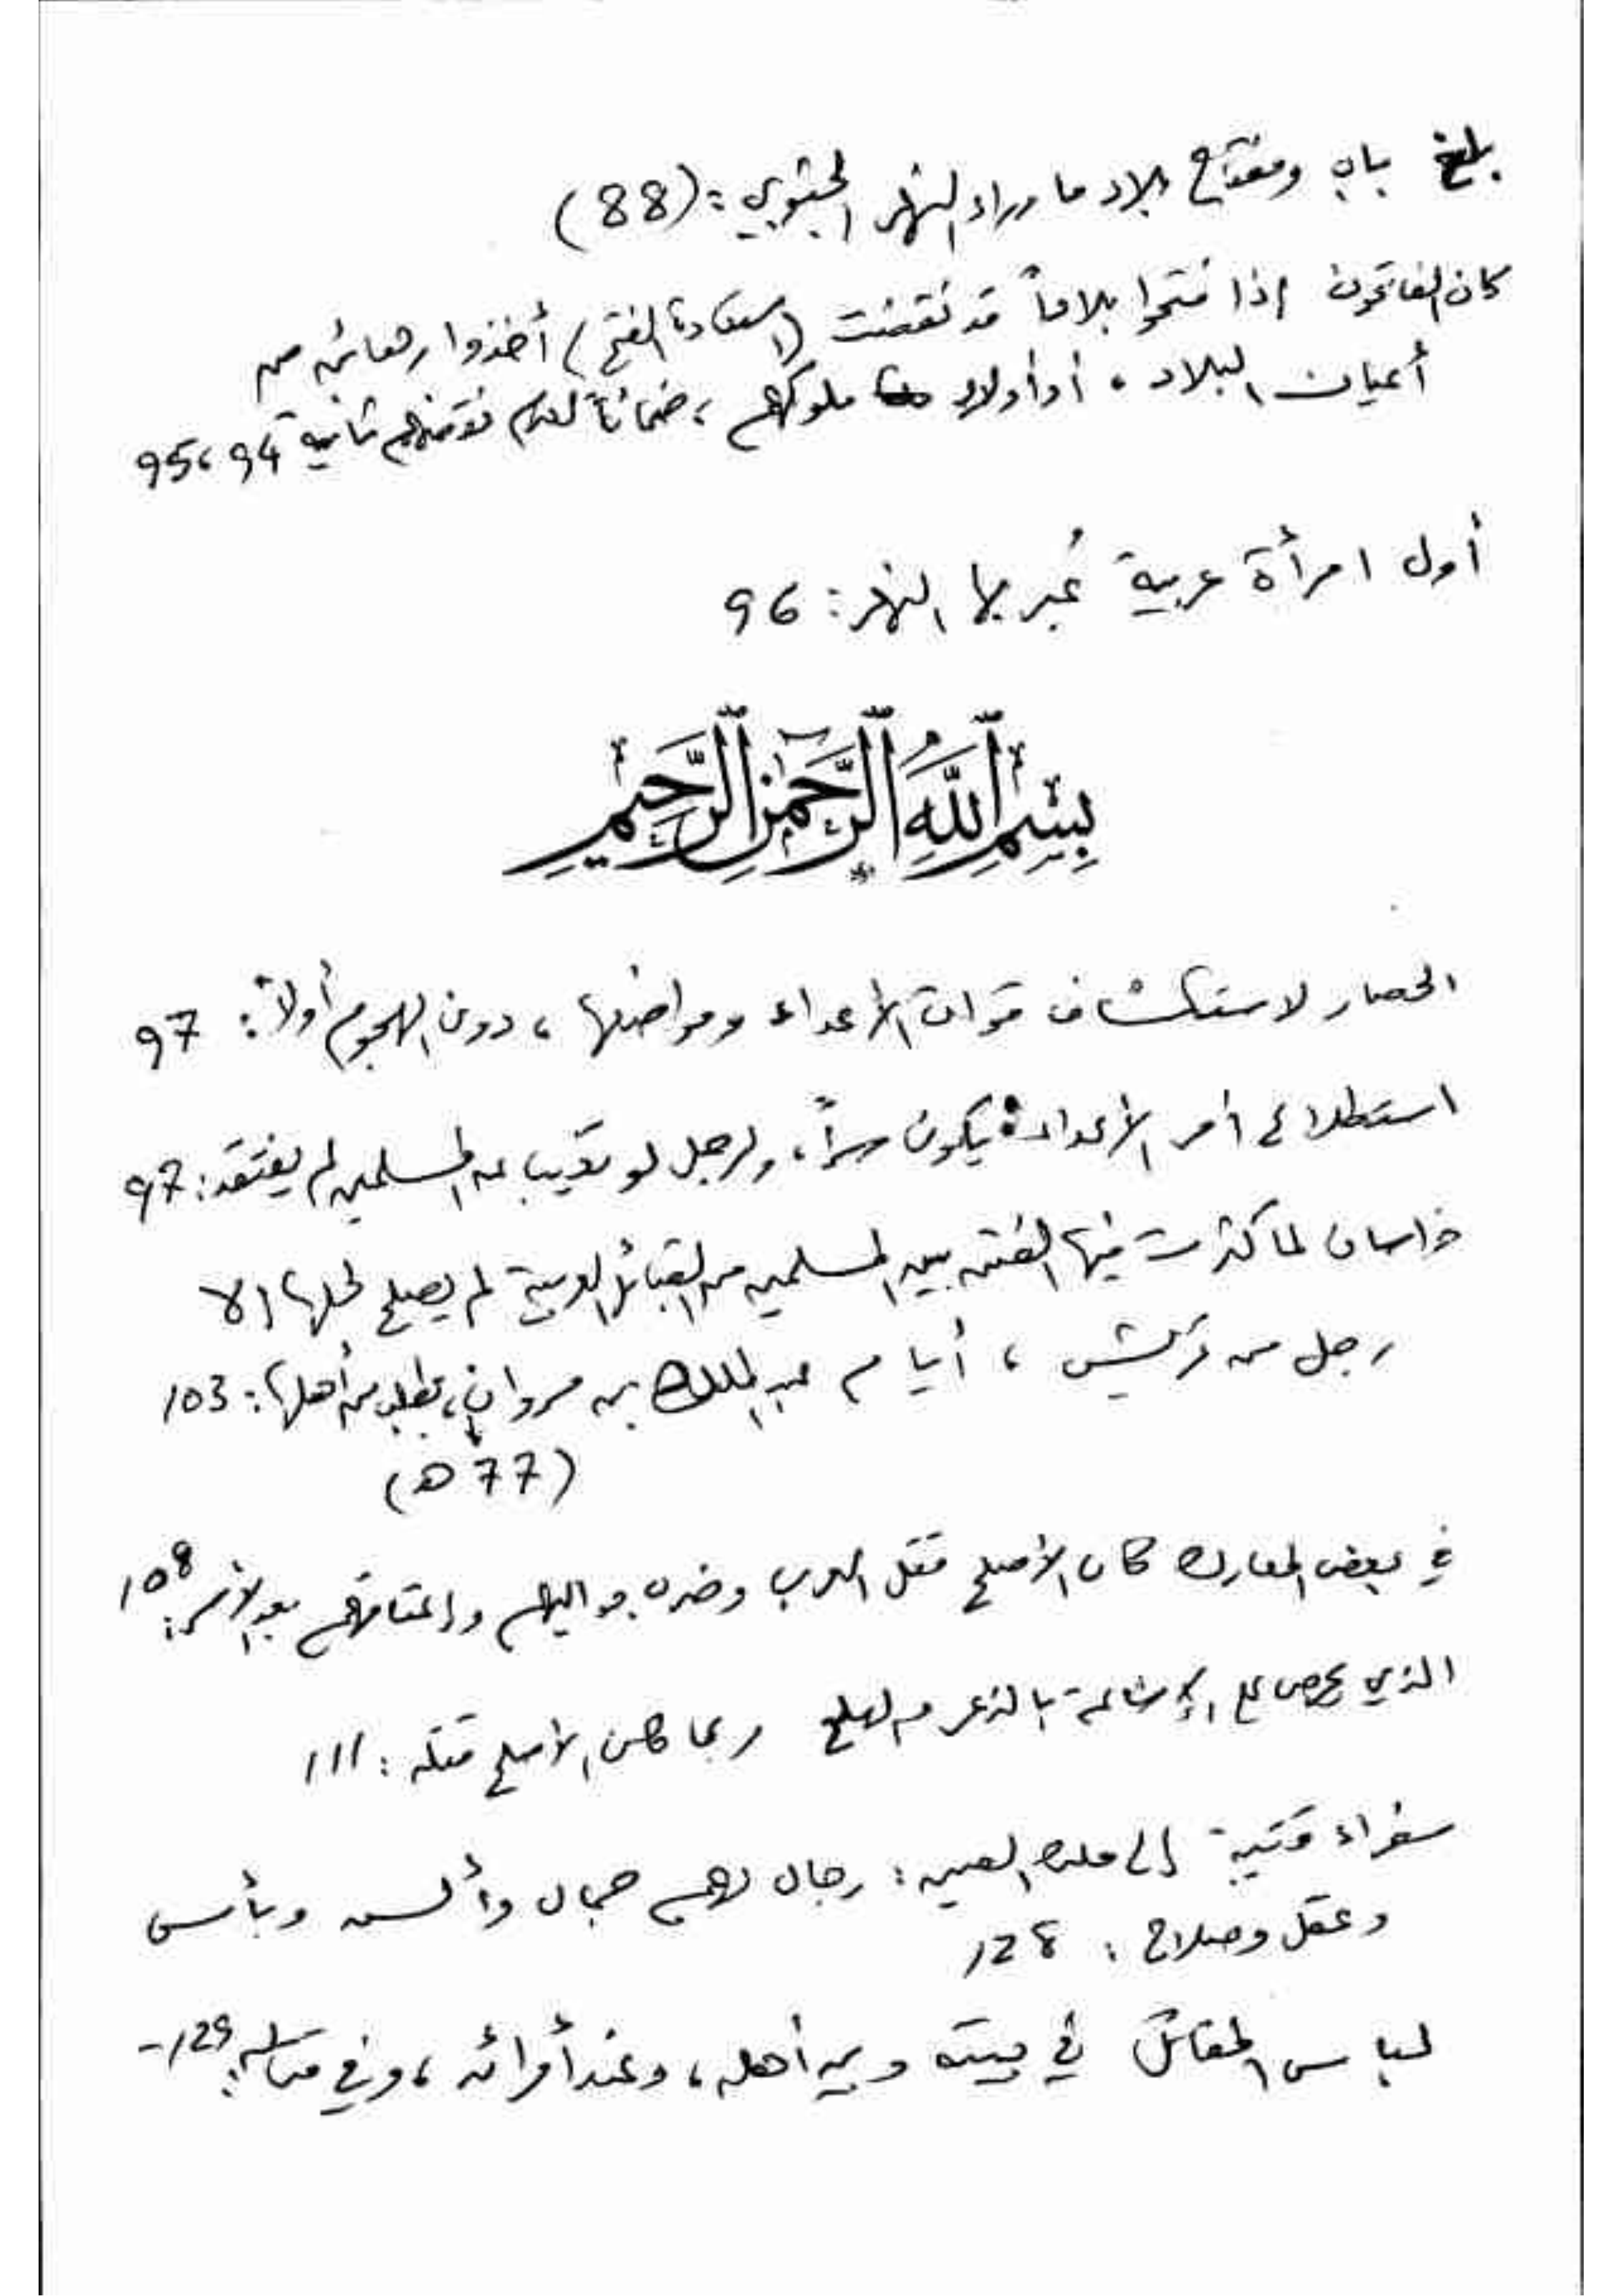 بلخ باب ومفتاح بلاد ما وراء النهر الجنوبي: (88)
كان الفاتحون إذا فتحوا بلاداً قد نقضت (استعادة الفتح) أخذوا رهائن من
أعيان البلاد، أو أولاد ملوكهم، ضماناً لعدم نقضهم ثانية 94، 95
أول امرأة عربية عُبر بها النهر: 96
بِسْمِ ٱللَّهِ ٱلرَّحْمَٰنِ ٱلرَّحِيمِ
الحصار لاستكشاف قوات الأعداء ومواضعها، دون الهجوم أولاً: 97
استطلاع أمر الأعداء يكون سراً، ولرجل لو تغيب عن المسلمين لم يفتقد: 97
خراسان لما كثرت فيها الفتن بين المسلمين من القبائل العربية لم يصلح لحلها إلا
رجل من قريش، أيام عبد الملك بن مروان، بطلب من أهلها: 103
(77 هـ)
في بعض المعارك كان الأصلح قتل العرب وضرب مواليهم وإعتاقهم بعد الأسر: 108
الذي يحرص على الإشاعة بالذعر والهلع ربما كان الأصلح قتله: 111
سفراء قتيبة إلى ملك الصين: رجال لهم جمال وألسن وبأس
وعقل وصلاح: 128
لباس المقاتل في بيته وبين أهله، وعند أمرائه، وفي قتاله: 129-